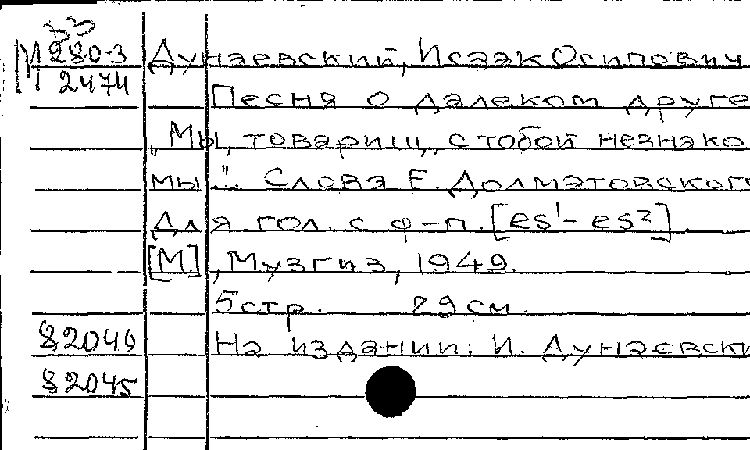 33
М 280-3 Дунаевский, Исаак Осипович
2474
Песня о далеком друге
„Мы, товарищ, с тобой незнако
мы". Слова Е. Долматовского
Для гол. с ф-п. [es¹-es²]
[М], Музгиз, 1949.
5 стр. 29 см
82046 На издании: И. Дунаевски
82045